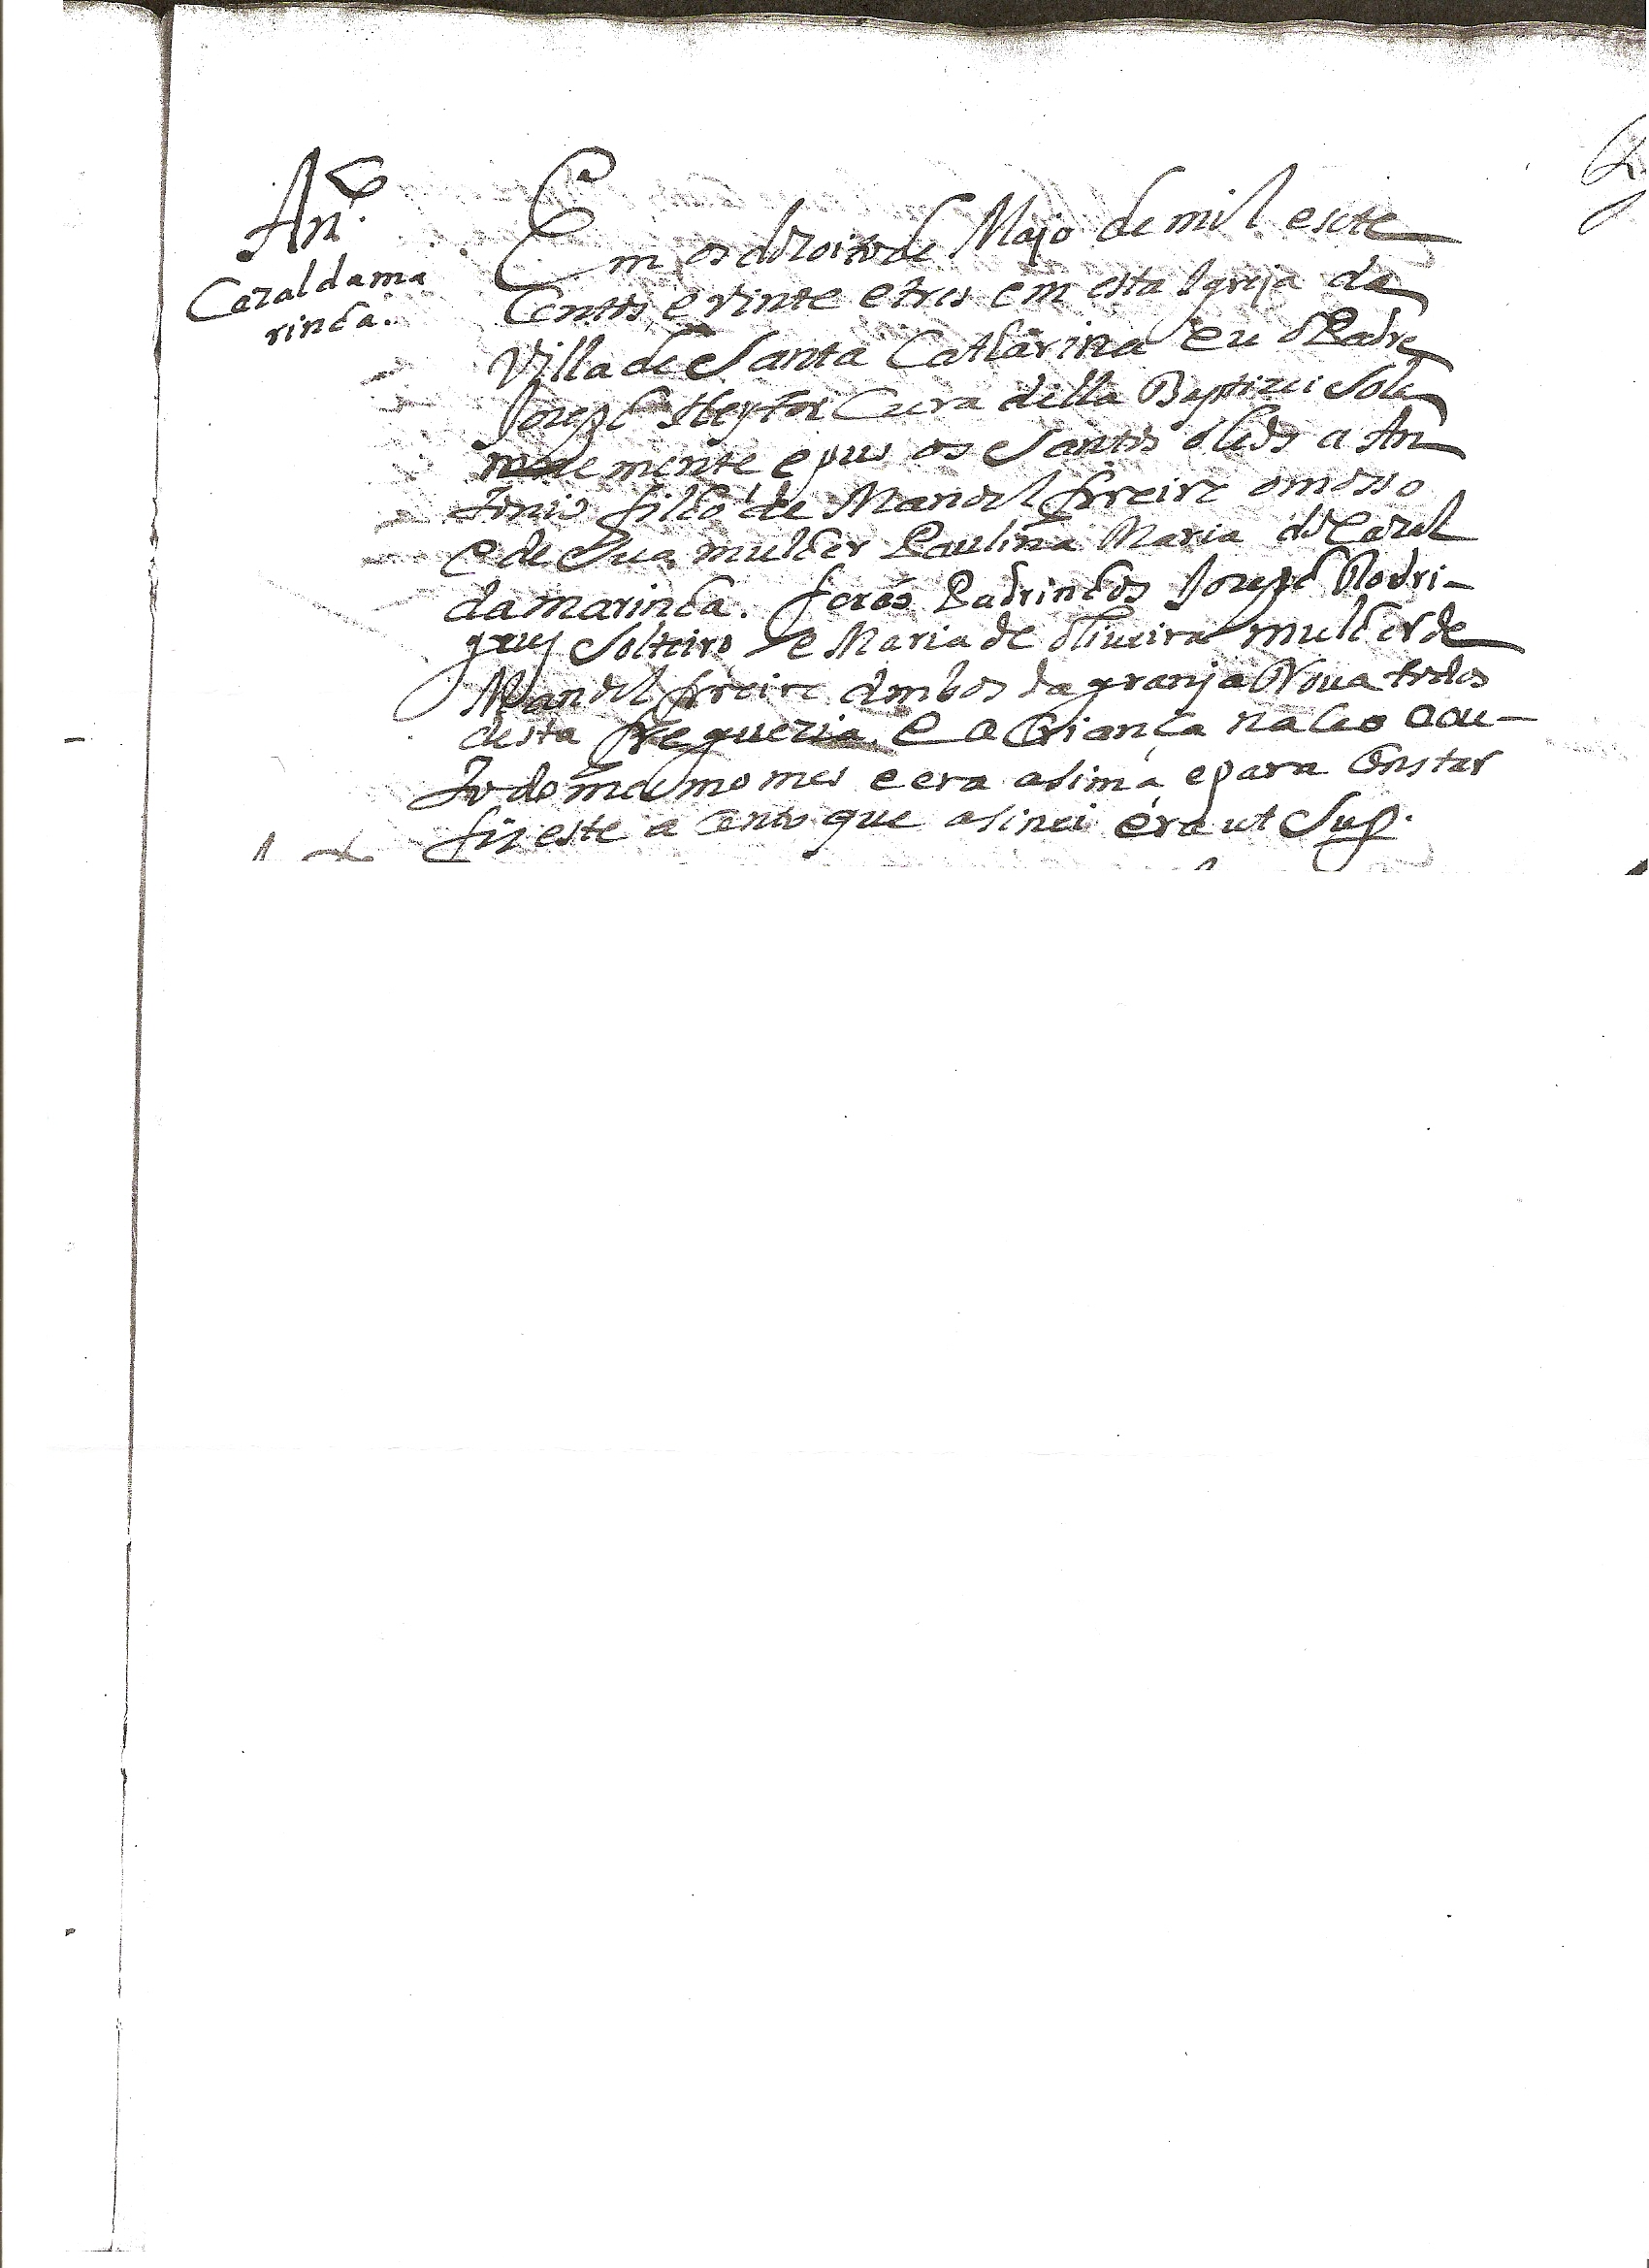 An.to
Cazal dama
rinha.
Em os dezoito de Mayo de mil e sete
Centos e vinte e tres em esta Igreja da
Villa de Santa Catharina eu o Padre
Joseph Heytor Cura della Baptizei Sole
mente e pus os Santos oleos a An
tonio filho de Manoel freire o mosso
e de Sua mulher Paulina Maria do Cazal
da marinha. forão Padrinhos Joseph Rodri-
gues Solteiro e Maria de oliueira mulher de
Manoel freire ambos da granja Noua todos
desta freguezia. e a Criança naceo a ou-
to do mesmo mes e era asima, e para Constar
fiz este a cento que asinei era ut Sup.